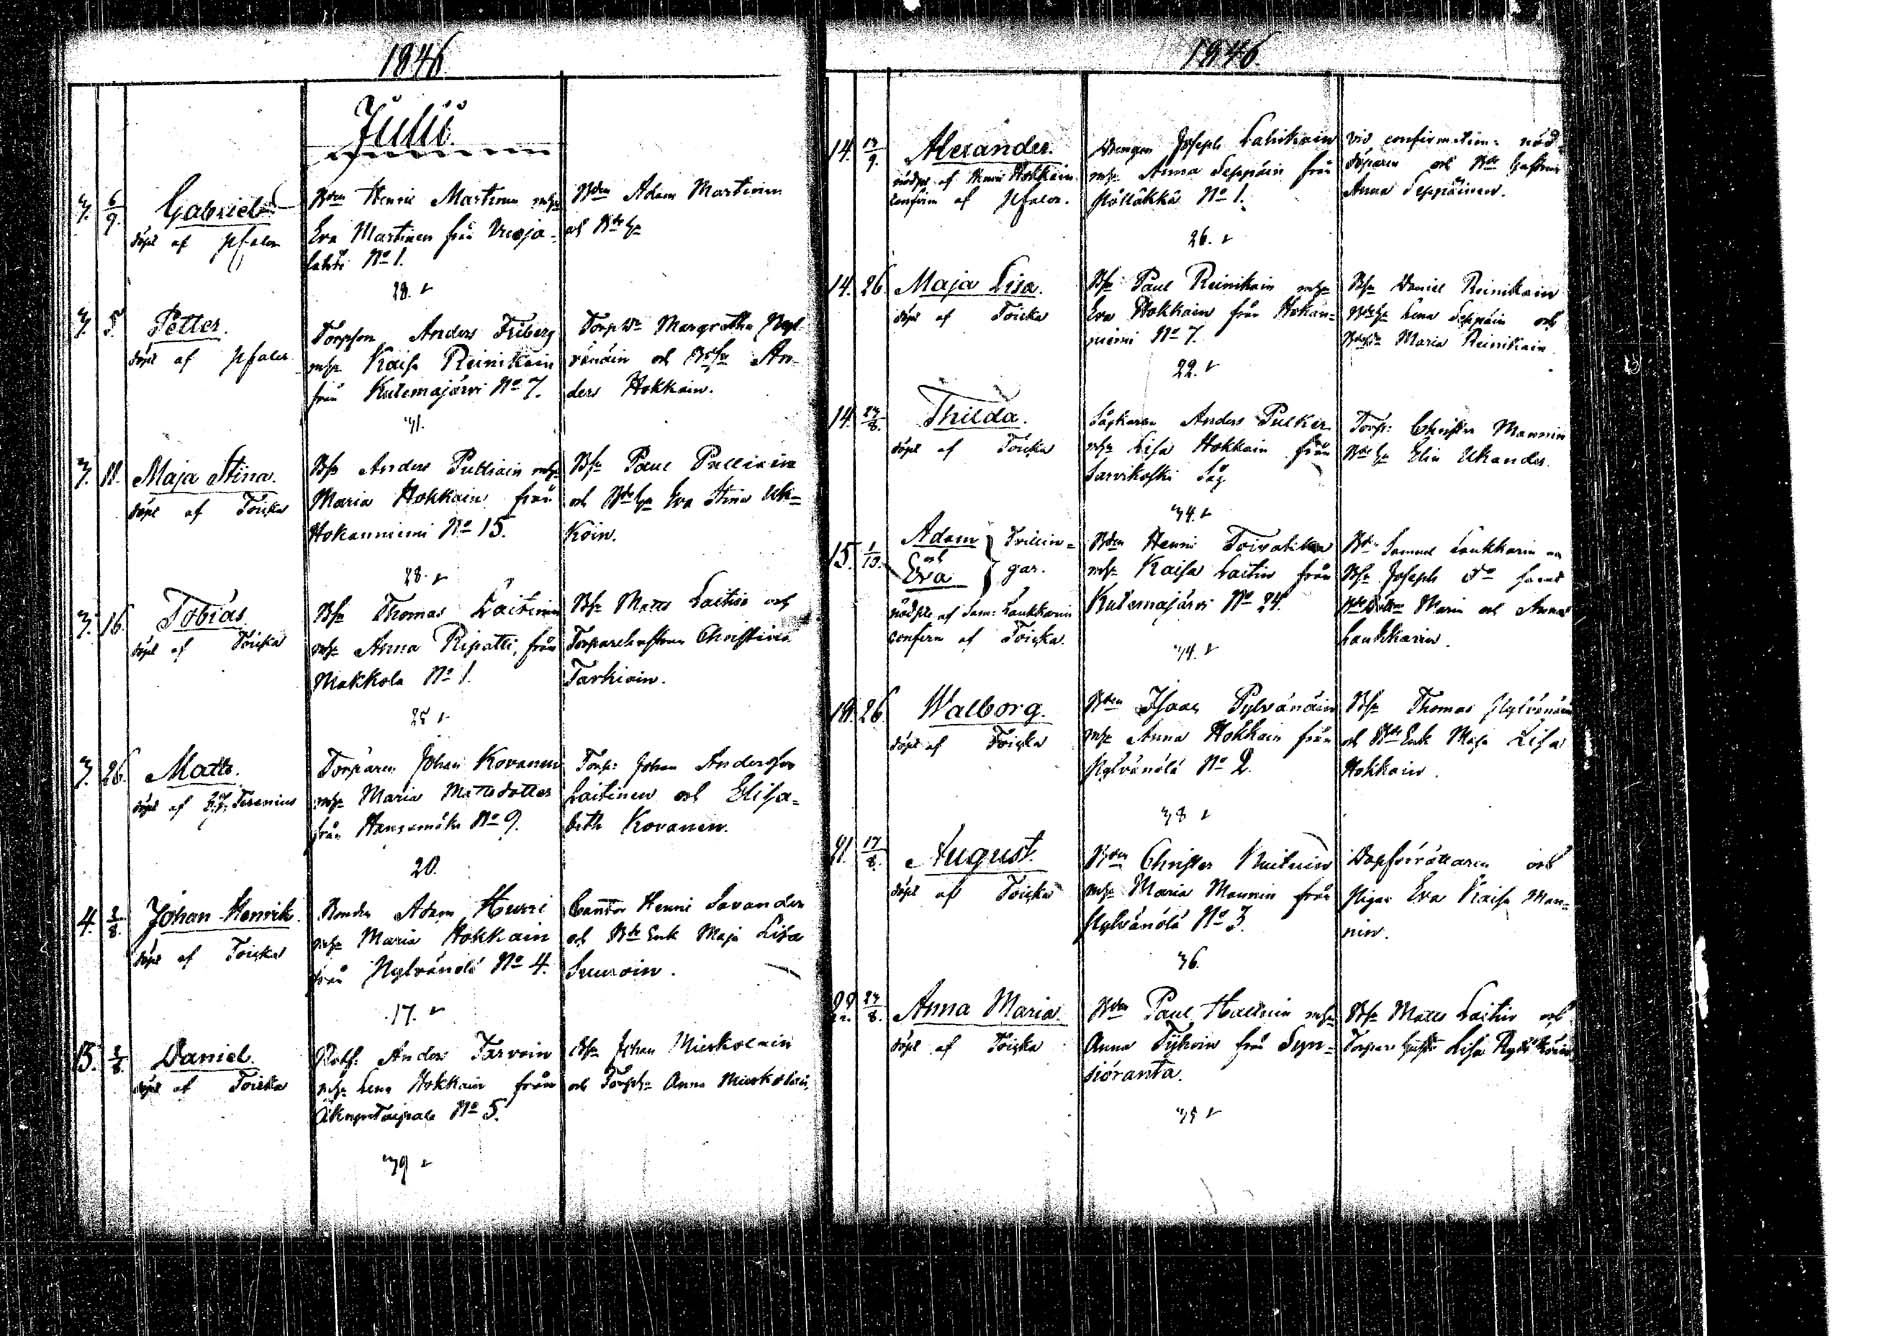 1846.
Julii.
3. 6/9. Gabriel
döpt af Pfaler
Bden Henric Martinen mhu
Eva Martinen från Vuoja-
lahti No 1.
28.
Bden Adam Martinen
och Bdehu
3. 5. Petter.
döpt af Pfaler
Torpson Anders Friberg
mhu Kaisa Reinikain
från Kutemajärvi No 7.
31.
Margretha Pyl-
vänäin och An-
ders Hokkain.
3. 11. Maja Stina.
döpt af Toiska
Bs: Anders Pulliain mhu
Maria Hokkain från
Hokanniemi No 15.
28.
Bs: Paul Pulliain
och Eva Stina Uk-
koin.
3. 16. Tobias
döpt af Toiska
Bs: Thomas Laitinen
mhu Anna Ripatti, från
Makkola No 1.
25
Bs: Matts Laitin och
Torparehustrun Christina
Tarkiain.
3. 26. Matts.
döpt af Terenius
Torparen Johan Kovanen
mhu Maria Mattsdotter
från Hangomäki No 9.
20.
Torp: Johan Andersson
Laitinen och Elisa-
beth Kovanen.
4. 2/8. Johan Henrik.
döpt af Toiska
Bonden Adam Hurri
mhu Maria Hokkain
från Pylvänälä No 4.
17.
Cantor Henric Savander
och Bde Enk Maja Lisa
Suuroin.
13. 2/8. Daniel.
döpt af Toiska
Anders Tarvain
mhu Lena Hokkain från
No 5.
39
Bs: Johan Mieskolain
och Anna Mieskolain
1846.
14. 13/9. Alexander.
nödpt af Henric Hokkain
confirm af Pfaler.
Drengen Joseph Lahikain
mhu Anna Seppäin från
Pölläkkä No 1.
26.
Vid confirmation: nöd-
döparen och Bde hustrun
Anna Seppäinen.
14. 26. Maja Lisa.
döpt af Toiska
Bs: Paul Reinikain mhu
Eva Hokkain från Hokan-
niemi No 7.
22.
Bs: Daniel Reinikain
Lena Seppäin och
Maria Reinikain.
14. 23/8. Thilda.
döpt af Toiska
Sågkaren Anders Pulker
mhu Lisa Hokkain från
Sarvikoski Såg
34.
Torp: Christer Mannin
Elin Ukander.
15. 1/10. Adam
och
Eva
Tvillin-
gar.
nödpte af Sam: Laukkarin
confirm af Toiska.
Bden Henric Toivakain
mhu Kaisa Laitin från
Kutemajärvi No 24.
34.
Samuel Laukkarin
Bs: Joseph Do
Maria och Anna
Laukkarin.
18. 26. Walborg.
döpt af Toiska
Bden Isaac Pylvänäin
mhu Anna Hokkain från
Pylvänälä No 2.
38
Bs: Thomas Pylvänäin
och Bde Enk Maja Lisa
Hokkain.
21. 17/8. August.
döpt af Toiska
Bden Christer
mhu Maria Mannin från
Pylvänälä No 3.
36.
Dopförrättaren och
Pigan Eva Kaisa Man-
nin.
22. 23/8. Anna Maria.
döpt af Toiska
Bden Paul mhu
Anna från Syn-
siöranta.
35
Bs: Matts Laitin och
Torpare Lisa